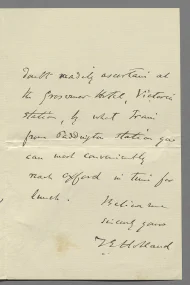 doubt readily ascertain at
the Grosvenor Hotel, Victoria
Station, by what Train
from Paddington Station you
can most conveniently
reach Oxford in time for
lunch.
Believe me
sincerely yours
T E Holland